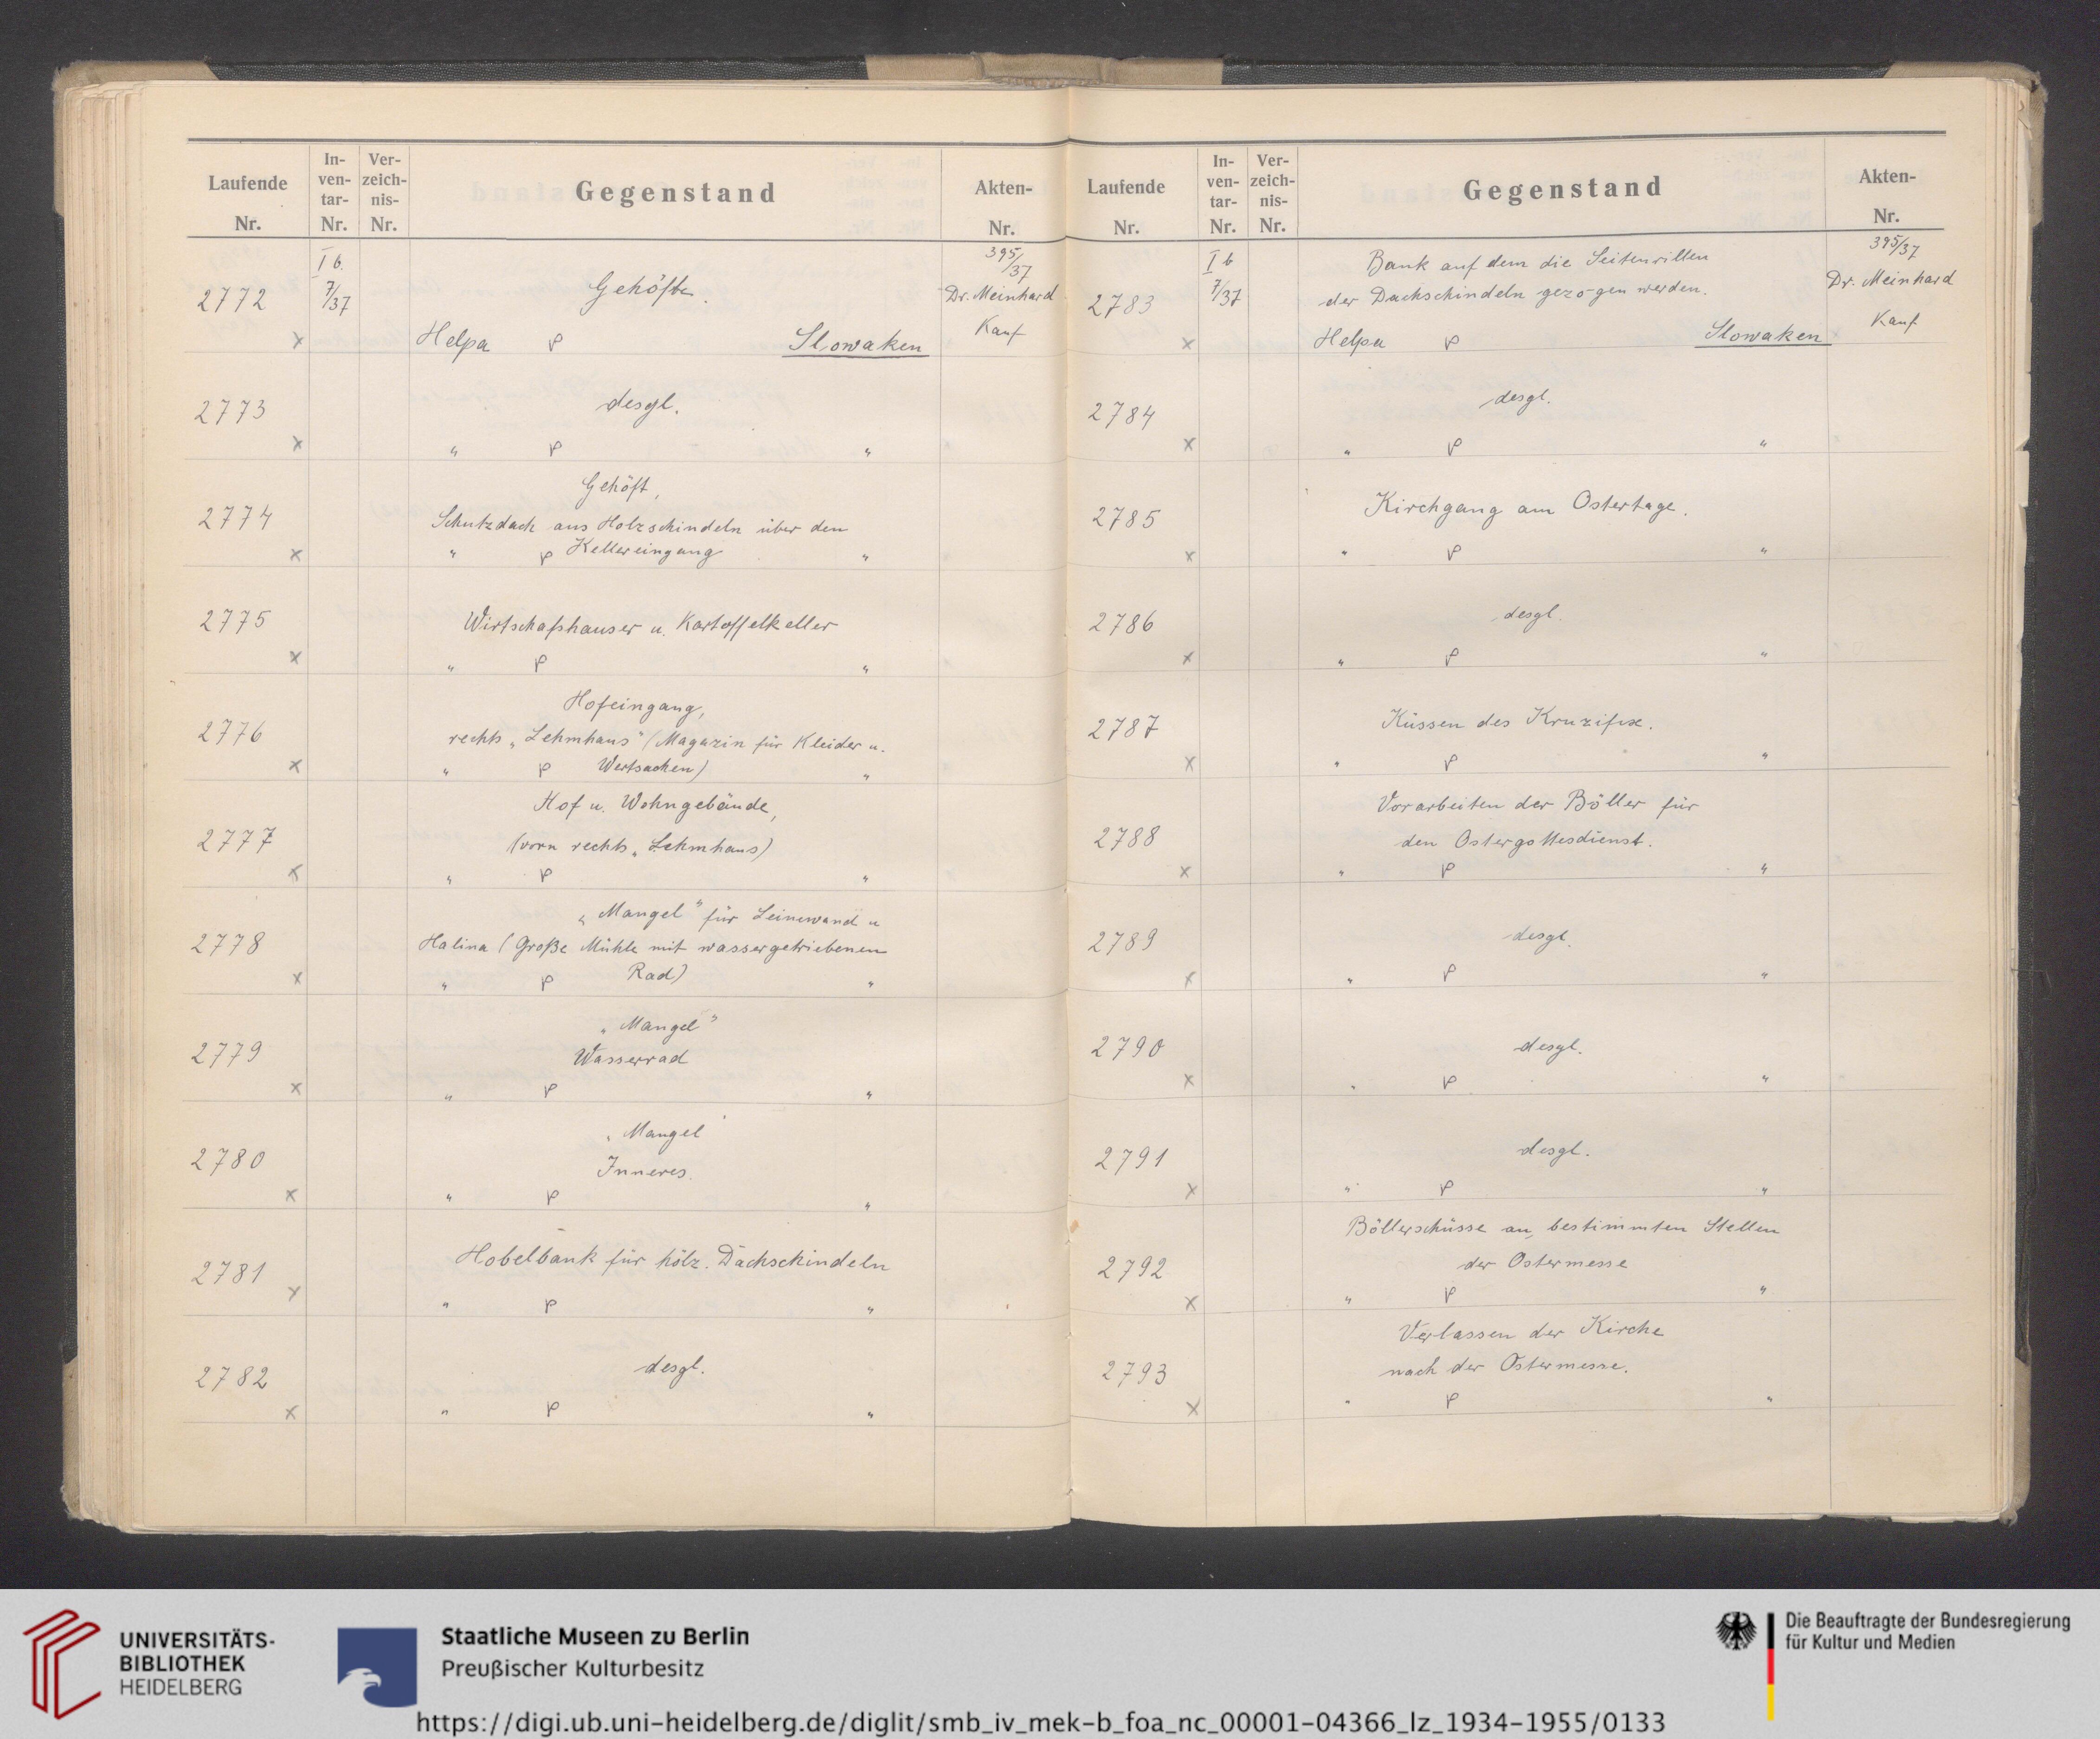 Laufende Nr. In-ven-tar-Nr. Ver-zeich-nis-Nr. Gegenstand Akten-Nr.
I b. 395/37
2772 7/37 Gehöfte. Dr. Meinhard
x Helpa P Slowaken Kauf
2773 desgl.
x " P "
Gehöft,
2774 Schutzdach aus Holzschindeln über den
x " P Kellereingang "
2775 Wirtschafshauser u. Kartoffelkeller
x " P "
Hofeingang,
2776 rechts „Lehmhaus" (Magazin für Kleider u.
x " P Wertsachen) "
Hof u. Wohngebäude,
2777 (vorn rechts „Lehmhaus)
x " P "
„Mangel" für Leinwand u
2778 Halina (Große Mühle mit wassergetriebenem
x " P Rad) "
„Mangel"
2779 Wasserrad
x " P "
„Mangel
2780 Inneres.
x " P "
2781 Hobelbank für hölz. Dachschindeln
x " P "
2782 desgl.
x " P "
Laufende Nr. In-ven-tar-Nr. Ver-zeich-nis-Nr. Gegenstand Akten-Nr.
I b Bank auf dem die Seitenrillen 395/37
2783 7/37 der Dachschindeln gezogen werden. Dr. Meinhard
x Helpa P Slowaken Kauf
2784 desgl.
x " P "
2785 Kirchgang am Ostertage.
x " P "
2786 desgl.
x " P "
2787 Küssen des Kruzifix.
x " P "
Vorarbeiten der Böller für
2788 den Ostergottesdienst.
x " P "
2789 desgl.
x " P "
2790 desgl.
x " P "
2791 desgl.
x " P "
Böllerschüsse an bestimmten Stellen
2792 der Ostermesse
x " P "
Verlassen der Kirche
2793 nach der Ostermesse.
x " P "
UNIVERSITÄTS-
BIBLIOTHEK
HEIDELBERG
Staatliche Museen zu Berlin
Preußischer Kulturbesitz
Die Beauftragte der Bundesregierung
für Kultur und Medien
https://digi.ub.uni-heidelberg.de/diglit/smb_iv_mek-b_foa_nc_00001-04366_lz_1934-1955/0133